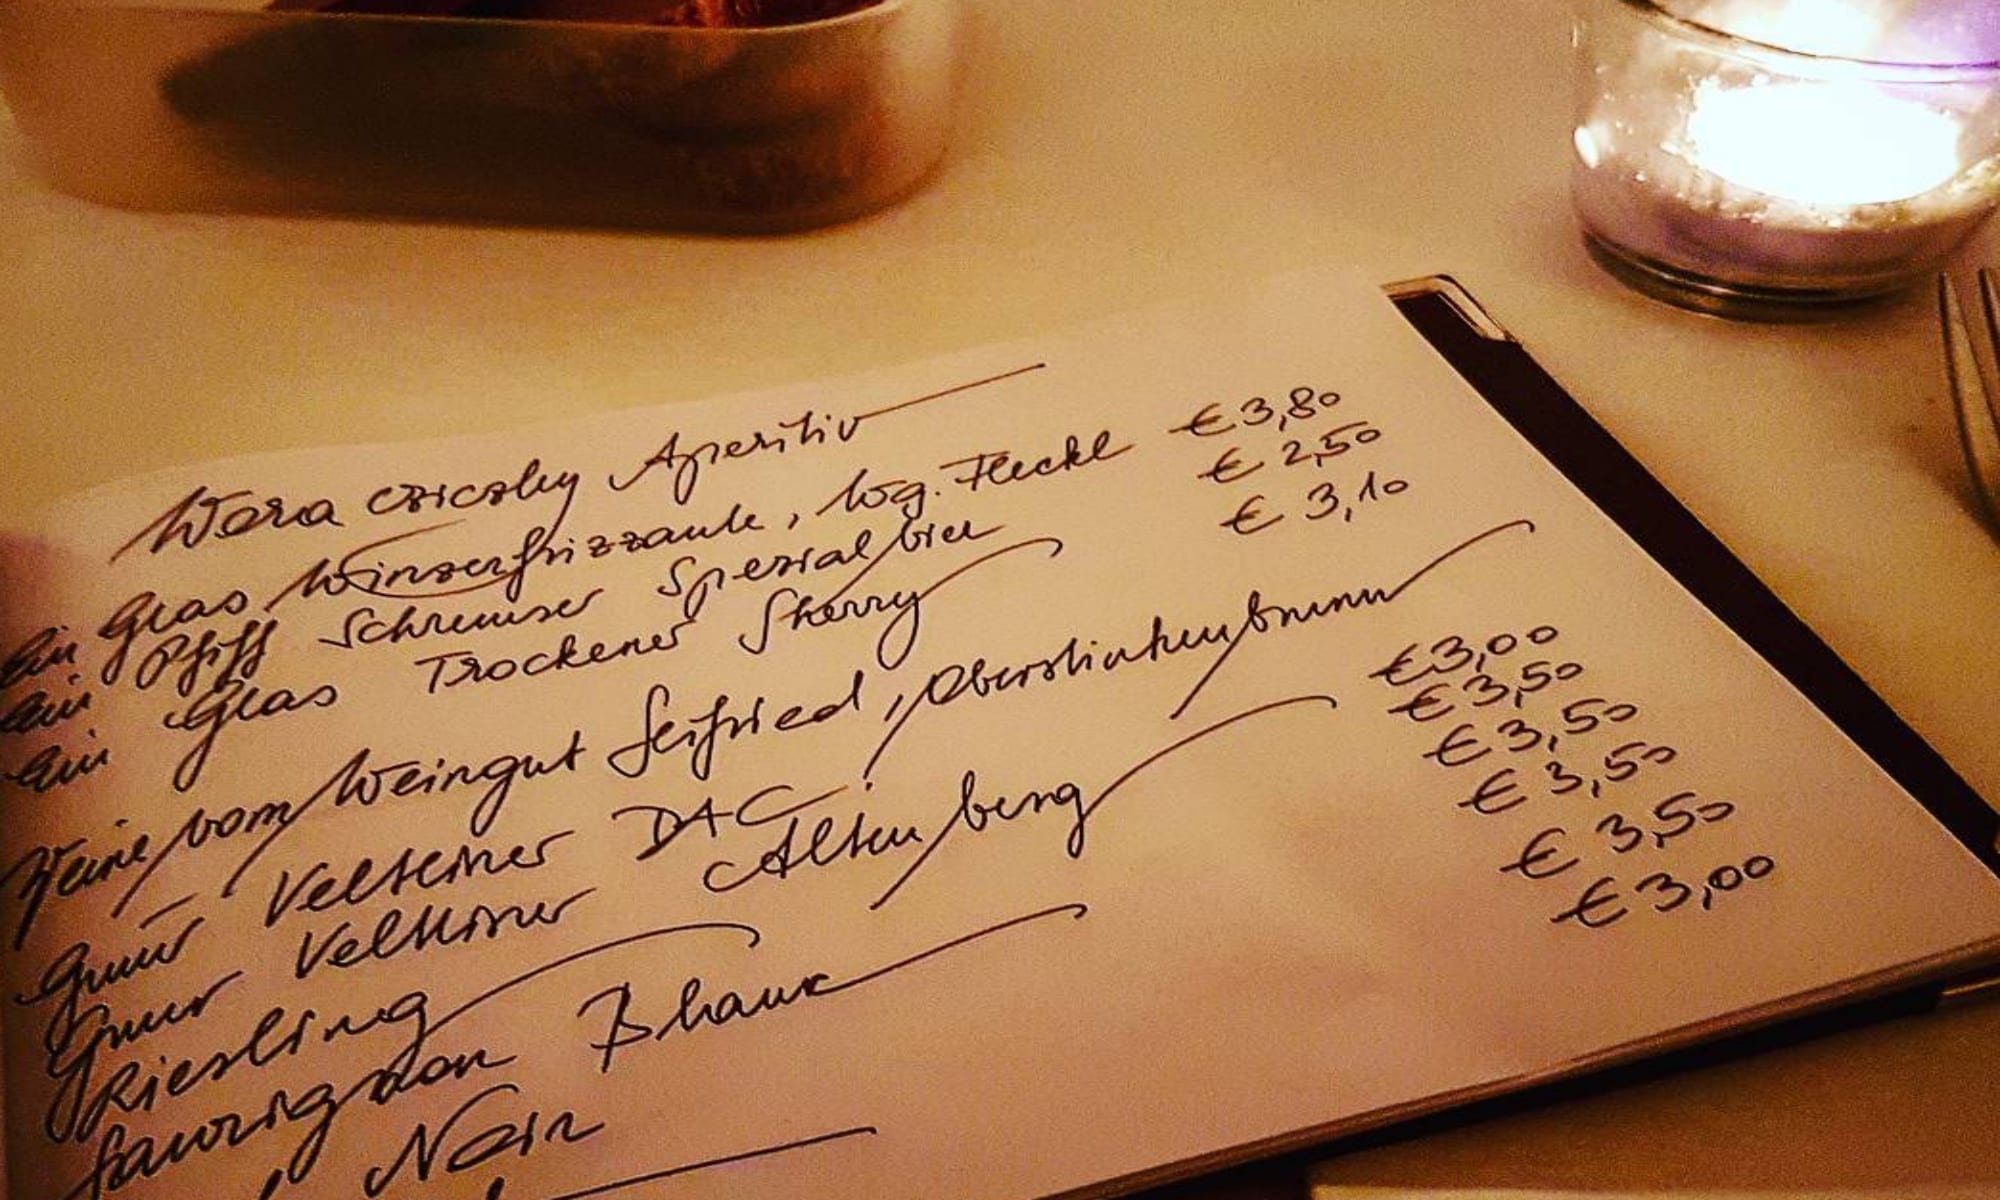 Wera cziczky Aperitiv
Ein Glas Winzerfrizzante, Wg. Fleckl € 3,80
Ein Pfiff Schremser Spezialbier € 2,50
Ein Glas Trockener Sherry € 3,10
Weine vom Weingut Seifried, Oberstinkenbrunn
Grüner Veltliner DAC € 3,00
Grüner Veltliner Altenberg € 3,50
Riesling € 3,50
Sauvignon Blanc € 3,50
Noir € 3,50
€ 3,00